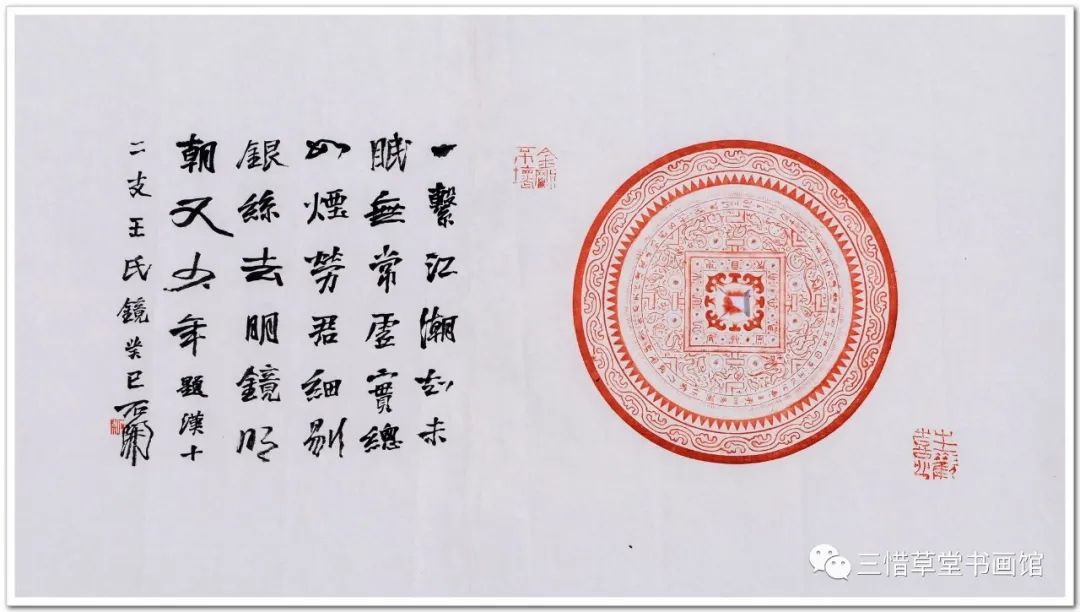 一繫江潮未
眠無常虛實總
如煙勞君細剔
銀絲去明鏡明
朝又少年題漢十
二支王氏鏡癸巳石開
金剛不壞
三惜草堂书画馆